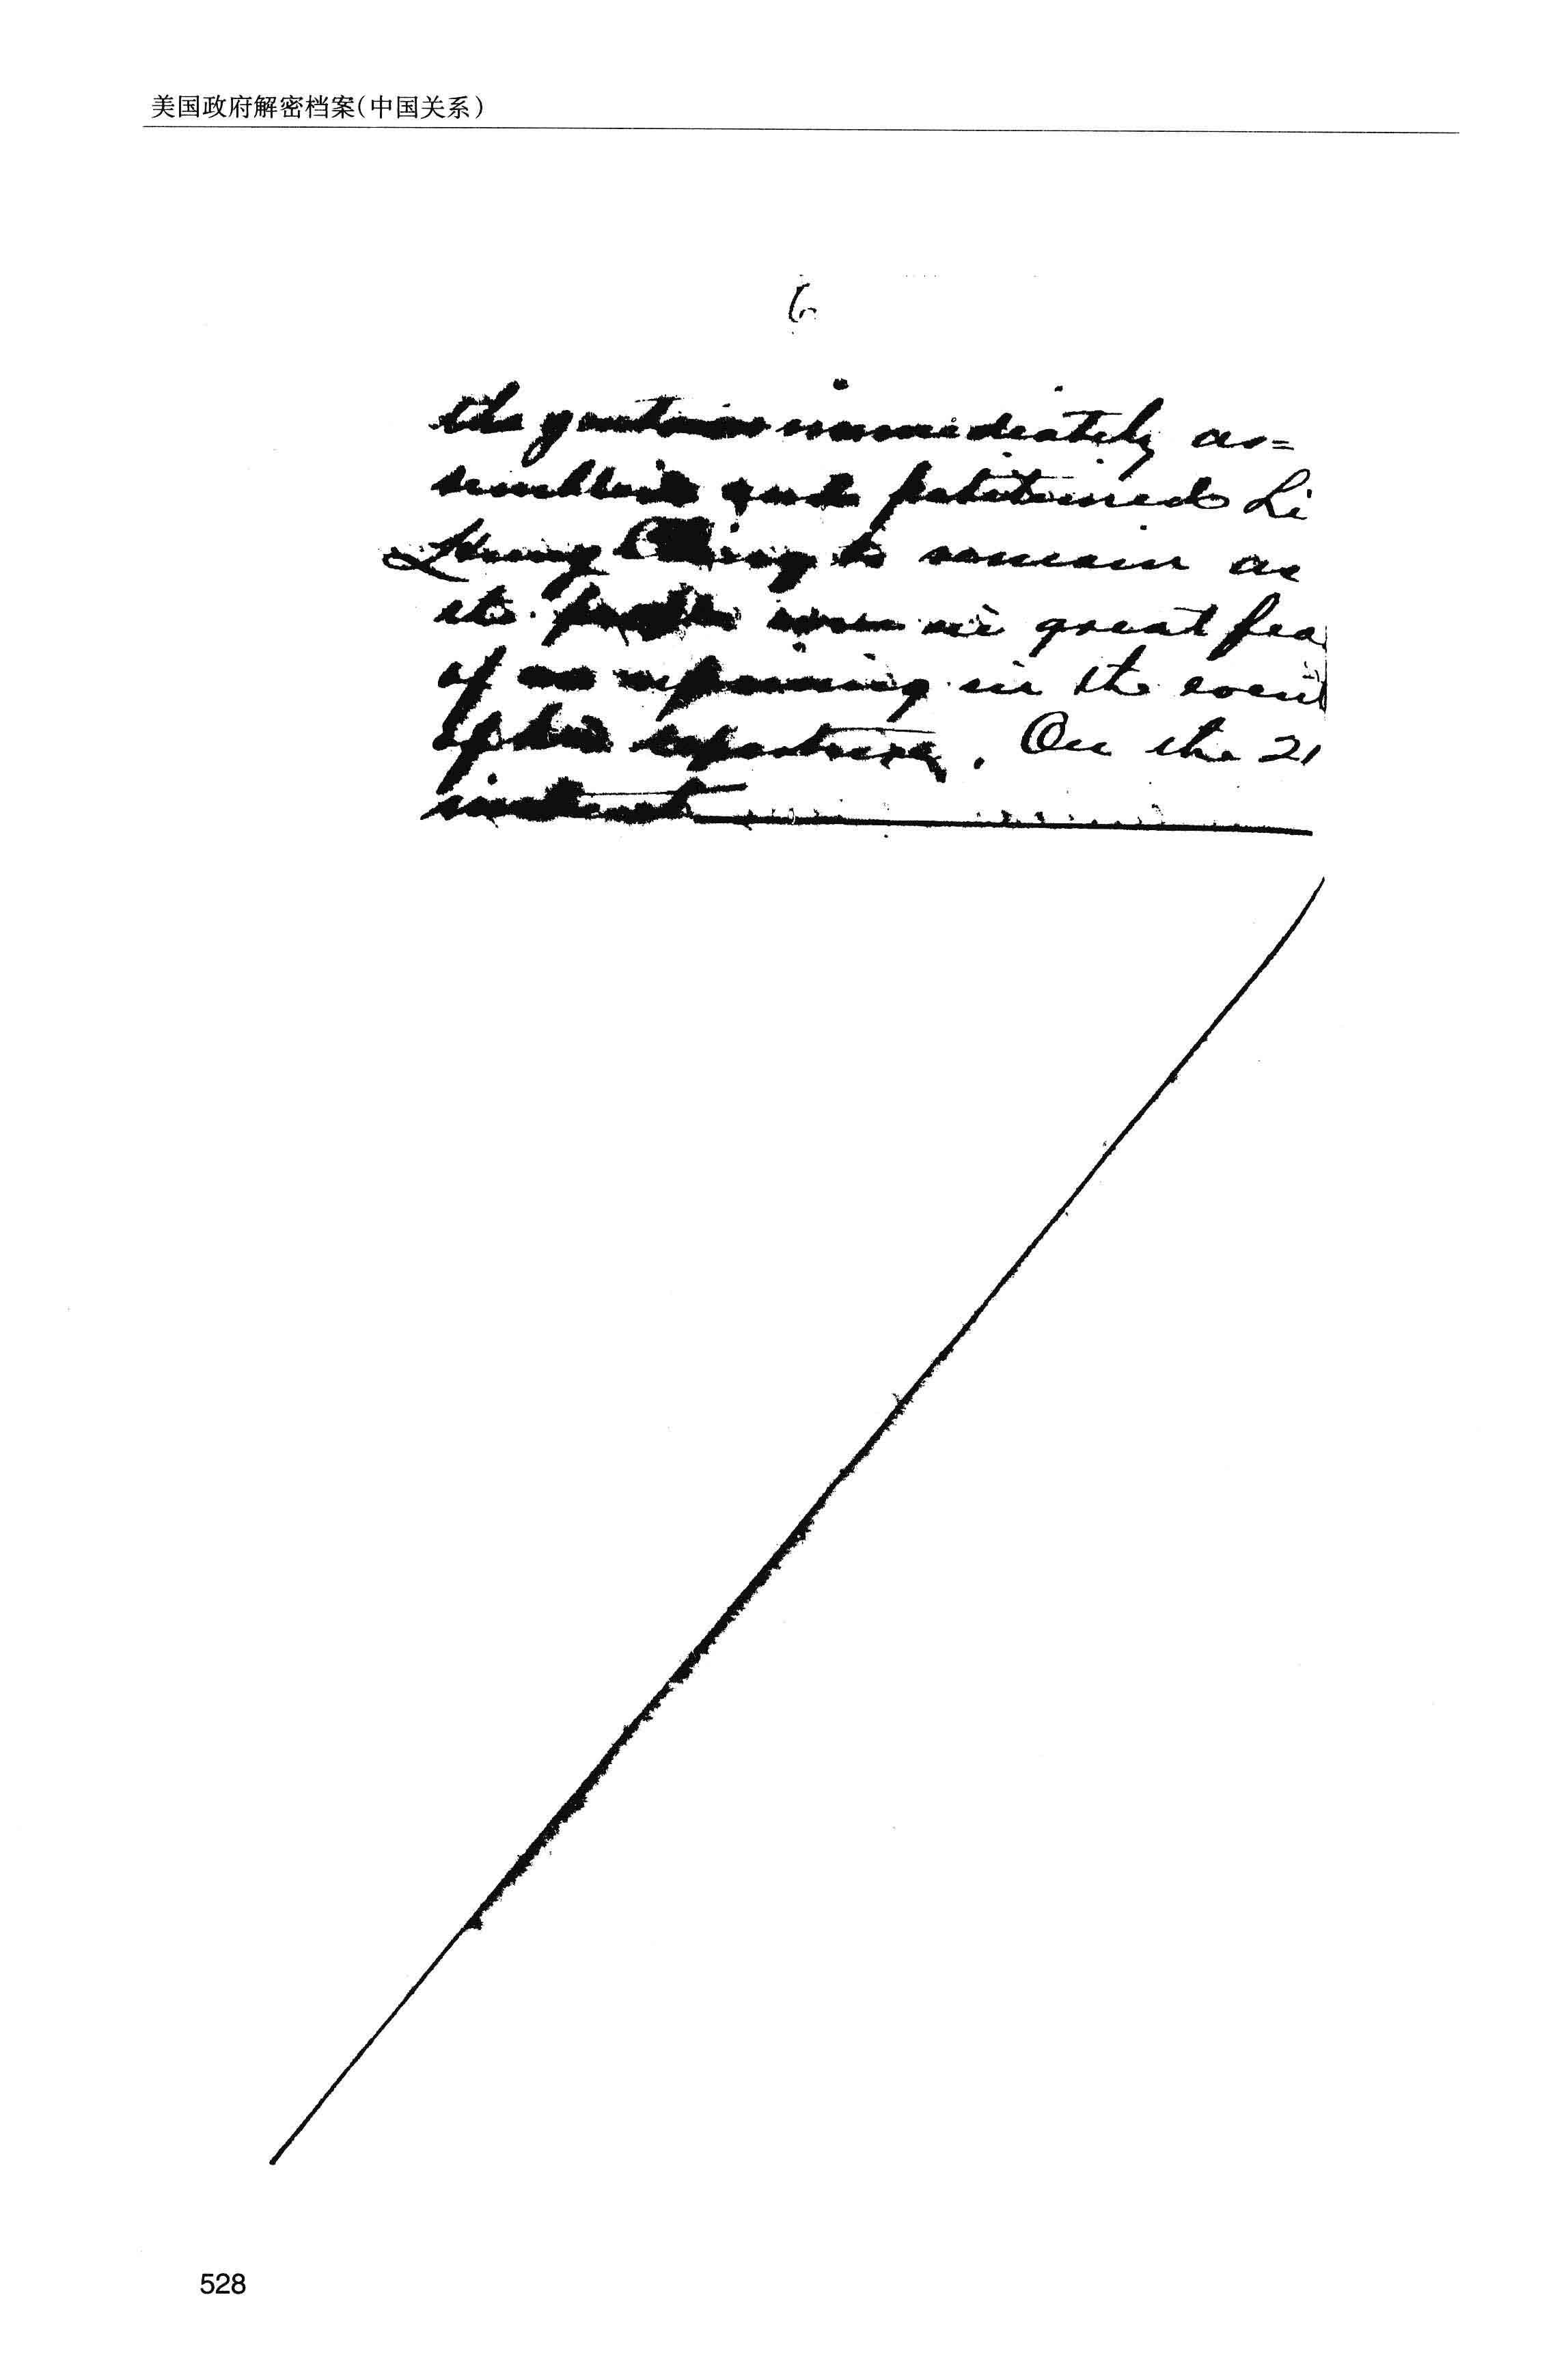 美国政府解密档案(中国关系)
6
the gentries immediately as=
sembled and petitioned Li
Hung Chang to remain as
the people were in great fea
of an uprising in the event
of his departure. On the 21
instant
528